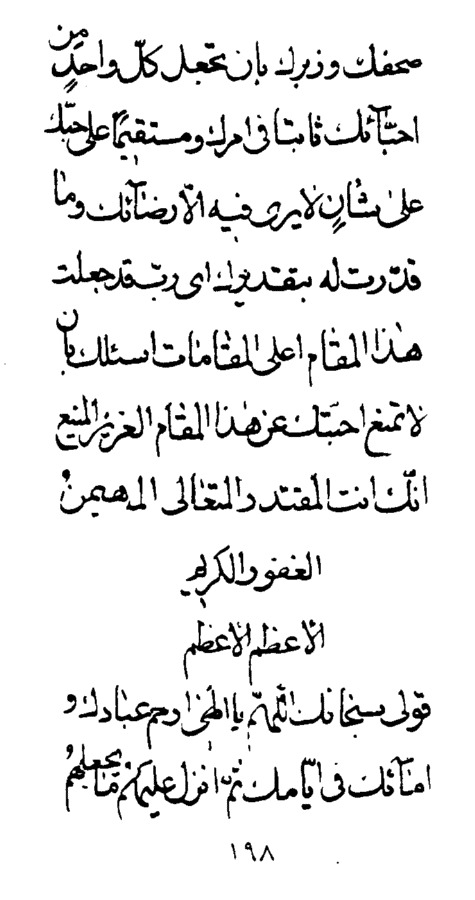 صحفك و زبرك بان تجعل كلّ واحدٍ من
احبّآئك ثابتا فى امرك و مستقيمًا على حبّك
على شانٍ لا يرى فيه الّا رضآئك و ما
قدّرت له بتقديرك اى ربّ قد جعلت
هذا المقام اعلى المقامات اسئلك بان
لا تمنع احبّتك عن هذا المقام العزيز المنيع
انّك انت المقتدر المتعالى المهيمنُ
الغفور الكريم
الأعظم الأعظم
قولى سبحانك اللّهمّ يا الهى ارحم عبادك و
امآئك فى ايّامك ثمّ انزل عليهم ما يجعلهُم
١٩٨